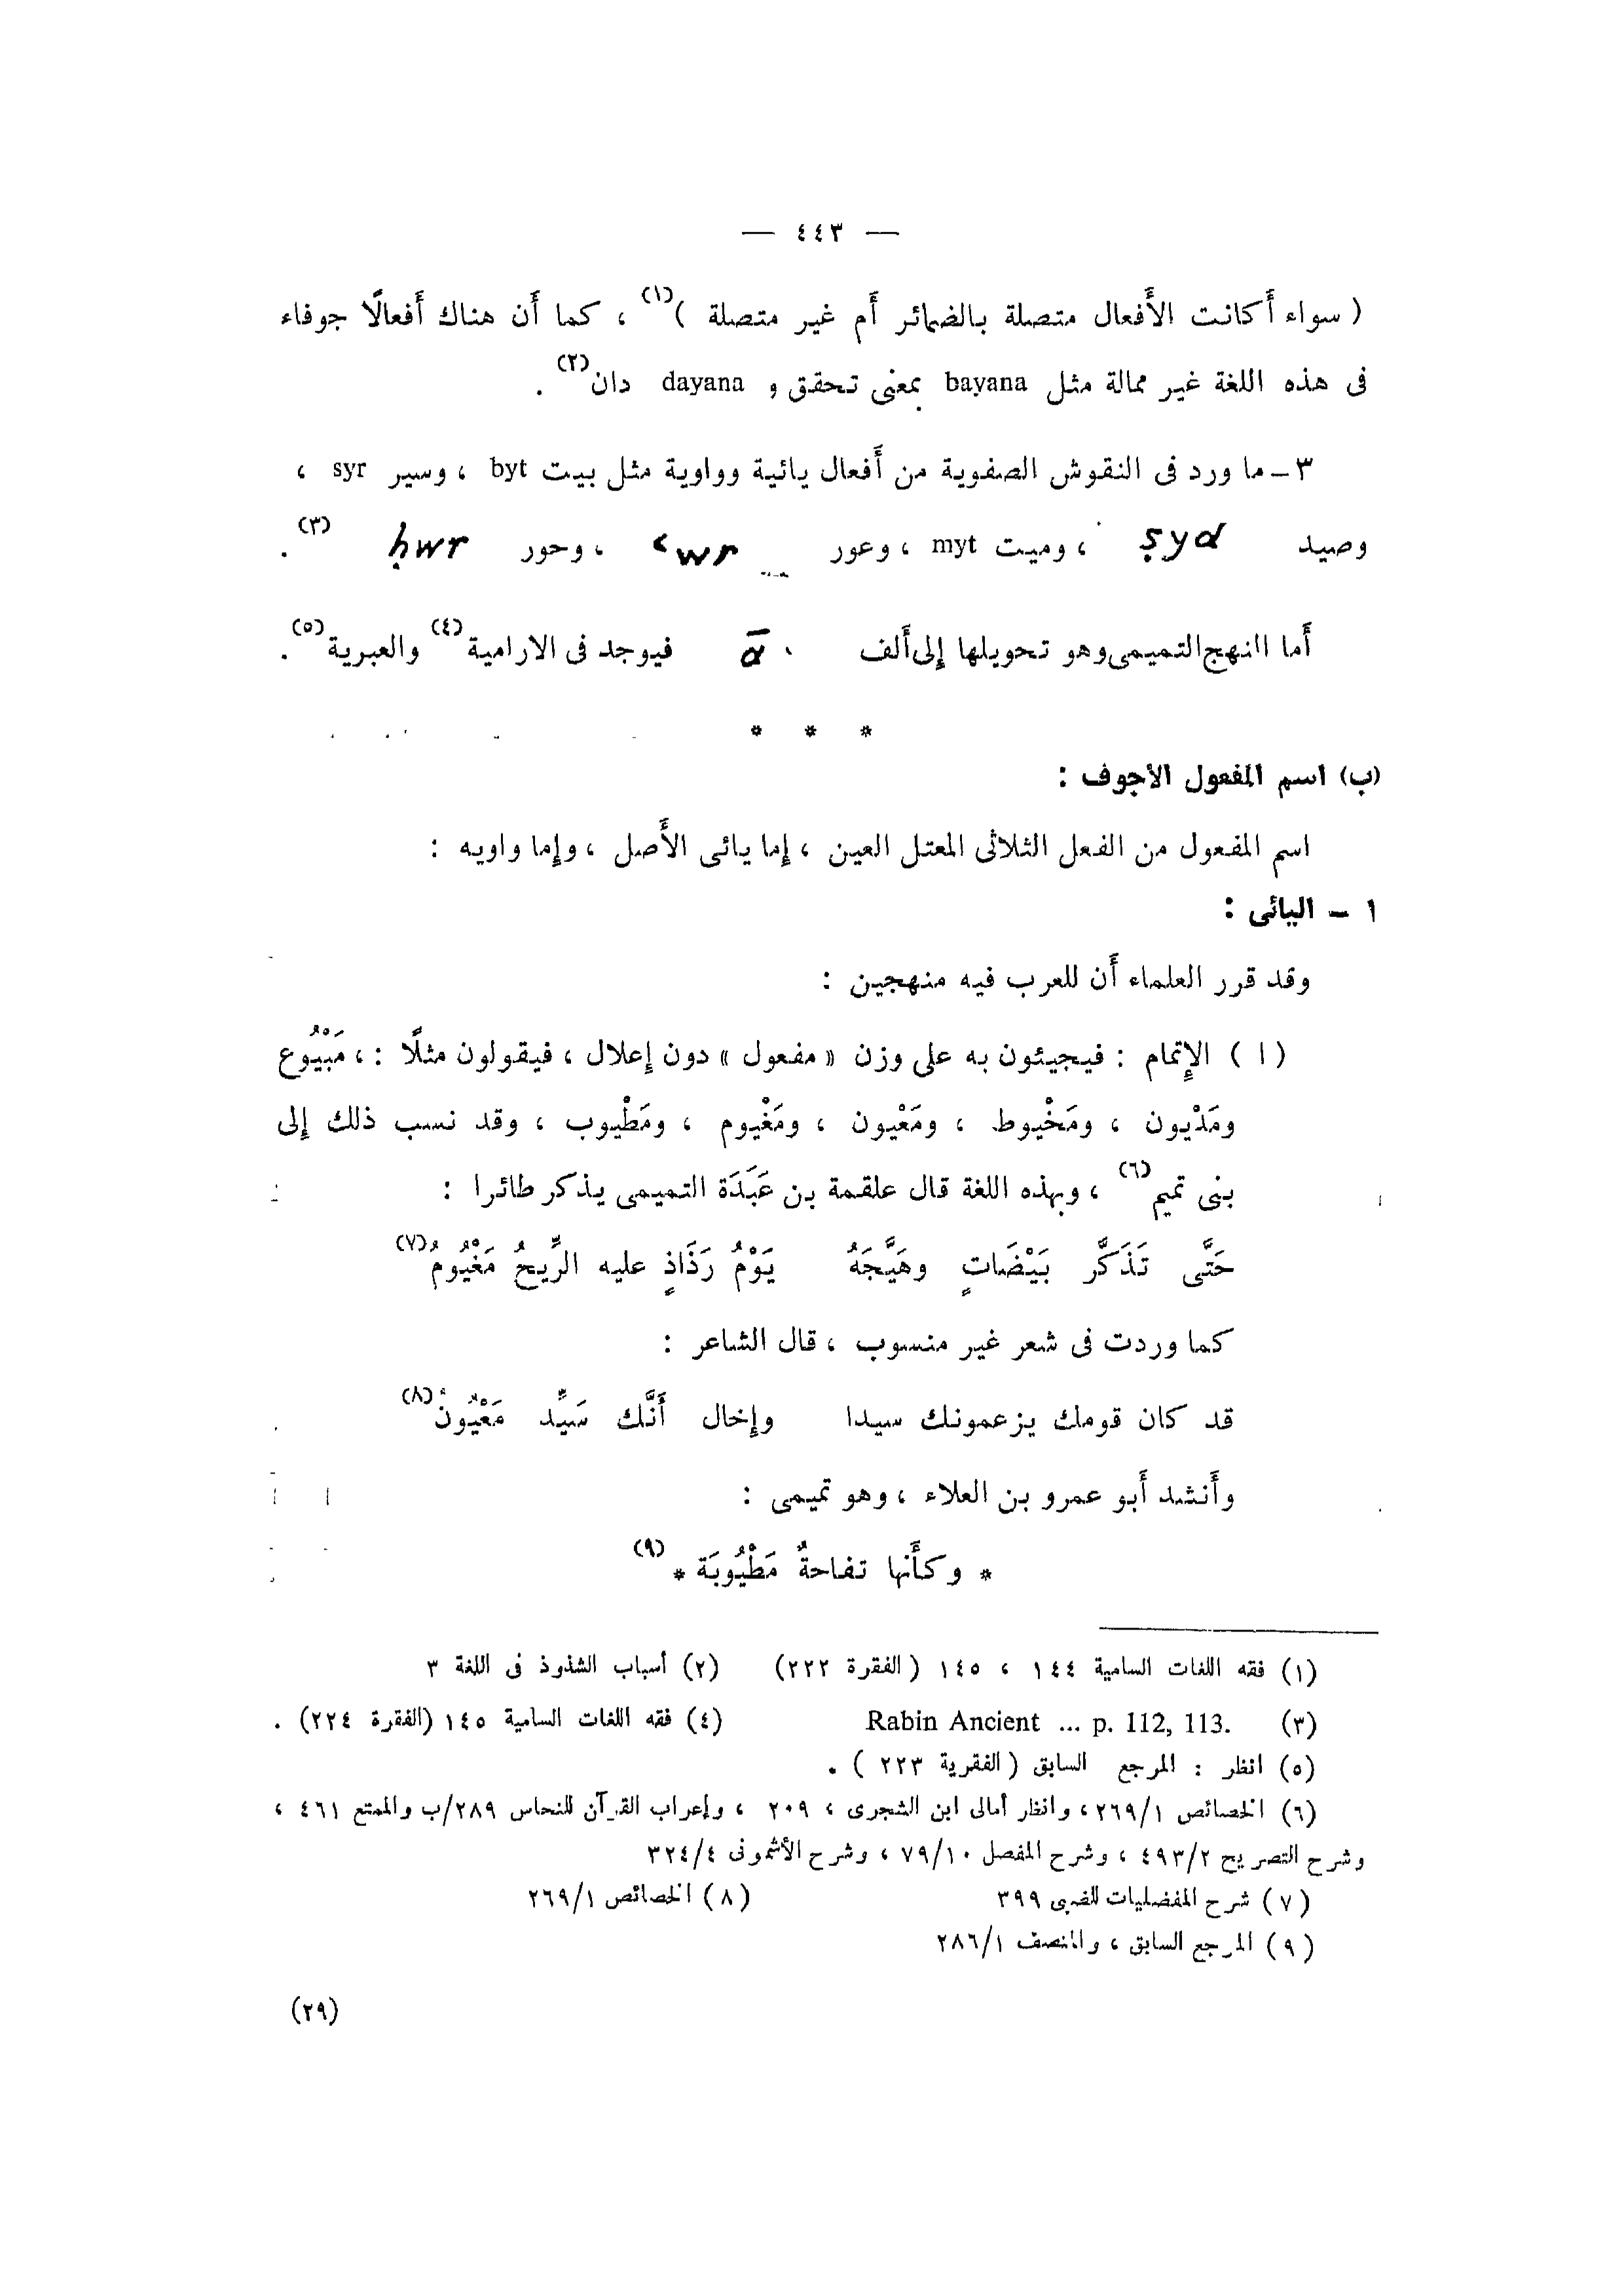 — ٤٤٣ —
( سواء أَكانت الأَفعال متصلة بالضمائر أَم غير متصلة )(١) ، كما أَن هناك أَفعالًا جوفاء
فى هذه اللغة غير ممالة مثل bayana بمعنى تحقق و dayana دان(٢) .
٣ – ما ورد فى النقوش الصفوية من أَفعال يائية وواوية مثل بيت byt ، وسير syr ،
وصيد ṣyd ، وميت myt ، وعور ʿwr ، وحور ḥwr (٣) .
أَما النهج التميمى وهو تحويلها إلى أَلف ā فيوجد فى الارامية(٤) والعبرية(٥) .
* * *
(ب) اسم المفعول الأجوف :
اسم المفعول من الفعل الثلاثى المعتل العين ، إما يائى الأَصل ، وإما واويه :
١ – اليائى :
وقد قرر العلماء أَن للعرب فيه منهجين :
( ا ) الإتمام : فيجيئون به على وزن « مفعول » دون إعلال ، فيقولون مثلًا : ، مَبْيُوع
ومَدْيون ، ومَخْيوط ، ومَعْيون ، ومَغْيوم ، ومَطْيوب ، وقد نسب ذلك إلى
بنى تميم(٦) ، وبهذه اللغة قال علقمة بن عَبَدَة التميمى يذكر طائرا :
حَتَّى تَذَكَّر بَيْضَاتٍ وهَيَّجَهُ يَوْمُ رَذَاذٍ عليه الرِّيحُ مَغْيُومُ(٧)
كما وردت فى شعر غير منسوب ، قال الشاعر :
قد كان قومك يزعمونك سيدا وإخال أَنَّك سَيِّد مَعْيُونُ(٨)
وأَنشد أَبو عمرو بن العلاء ، وهو تميمى :
* وكأَنها تفاحةٌ مَطْيُوبَة * (٩)
(١) فقه اللغات السامية ١٤٤ ، ١٤٥ ( الفقرة ٢٢٢) (٢) أسباب الشذوذ فى اللغة ٣
(٣) Rabin Ancient ... p. 112, 113. (٤) فقه اللغات السامية ١٤٥ (الفقرة ٢٢٤) .
(٥) انظر : المرجع السابق ( الفقرية ٢٢٣ ) .
(٦) الخصائص ٢٦٩/١ ، وانظر أمالى ابن الشجرى ، ٢٠٩ ، وإعراب القرآن للنحاس ٢٨٩/ب والممتع ٤٦١ ،
وشرح التصريح ٤٩٣/٢ ، وشرح المفصل ٧٩/١٠ ، وشرح الأشمونى ٣٢٤/٤
(٧) شرح المفضليات للضبى ٣٩٩ (٨) الخصائص ٢٦٩/١
(٩) المرجع السابق ، والمنصف ٢٨٦/١
(٢٩)